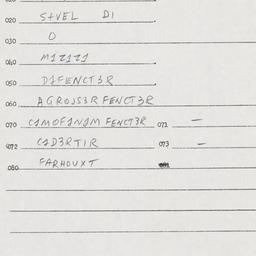 020 S+VEL DI
030 O
040 M1Z1Z1
050 D1FENCT3R
060 AGROJS3R FENCT3R
070 C1MOF1N1M FENCT3R 071 —
072 C1D3RTIR 073 —
080 FARHOUXT